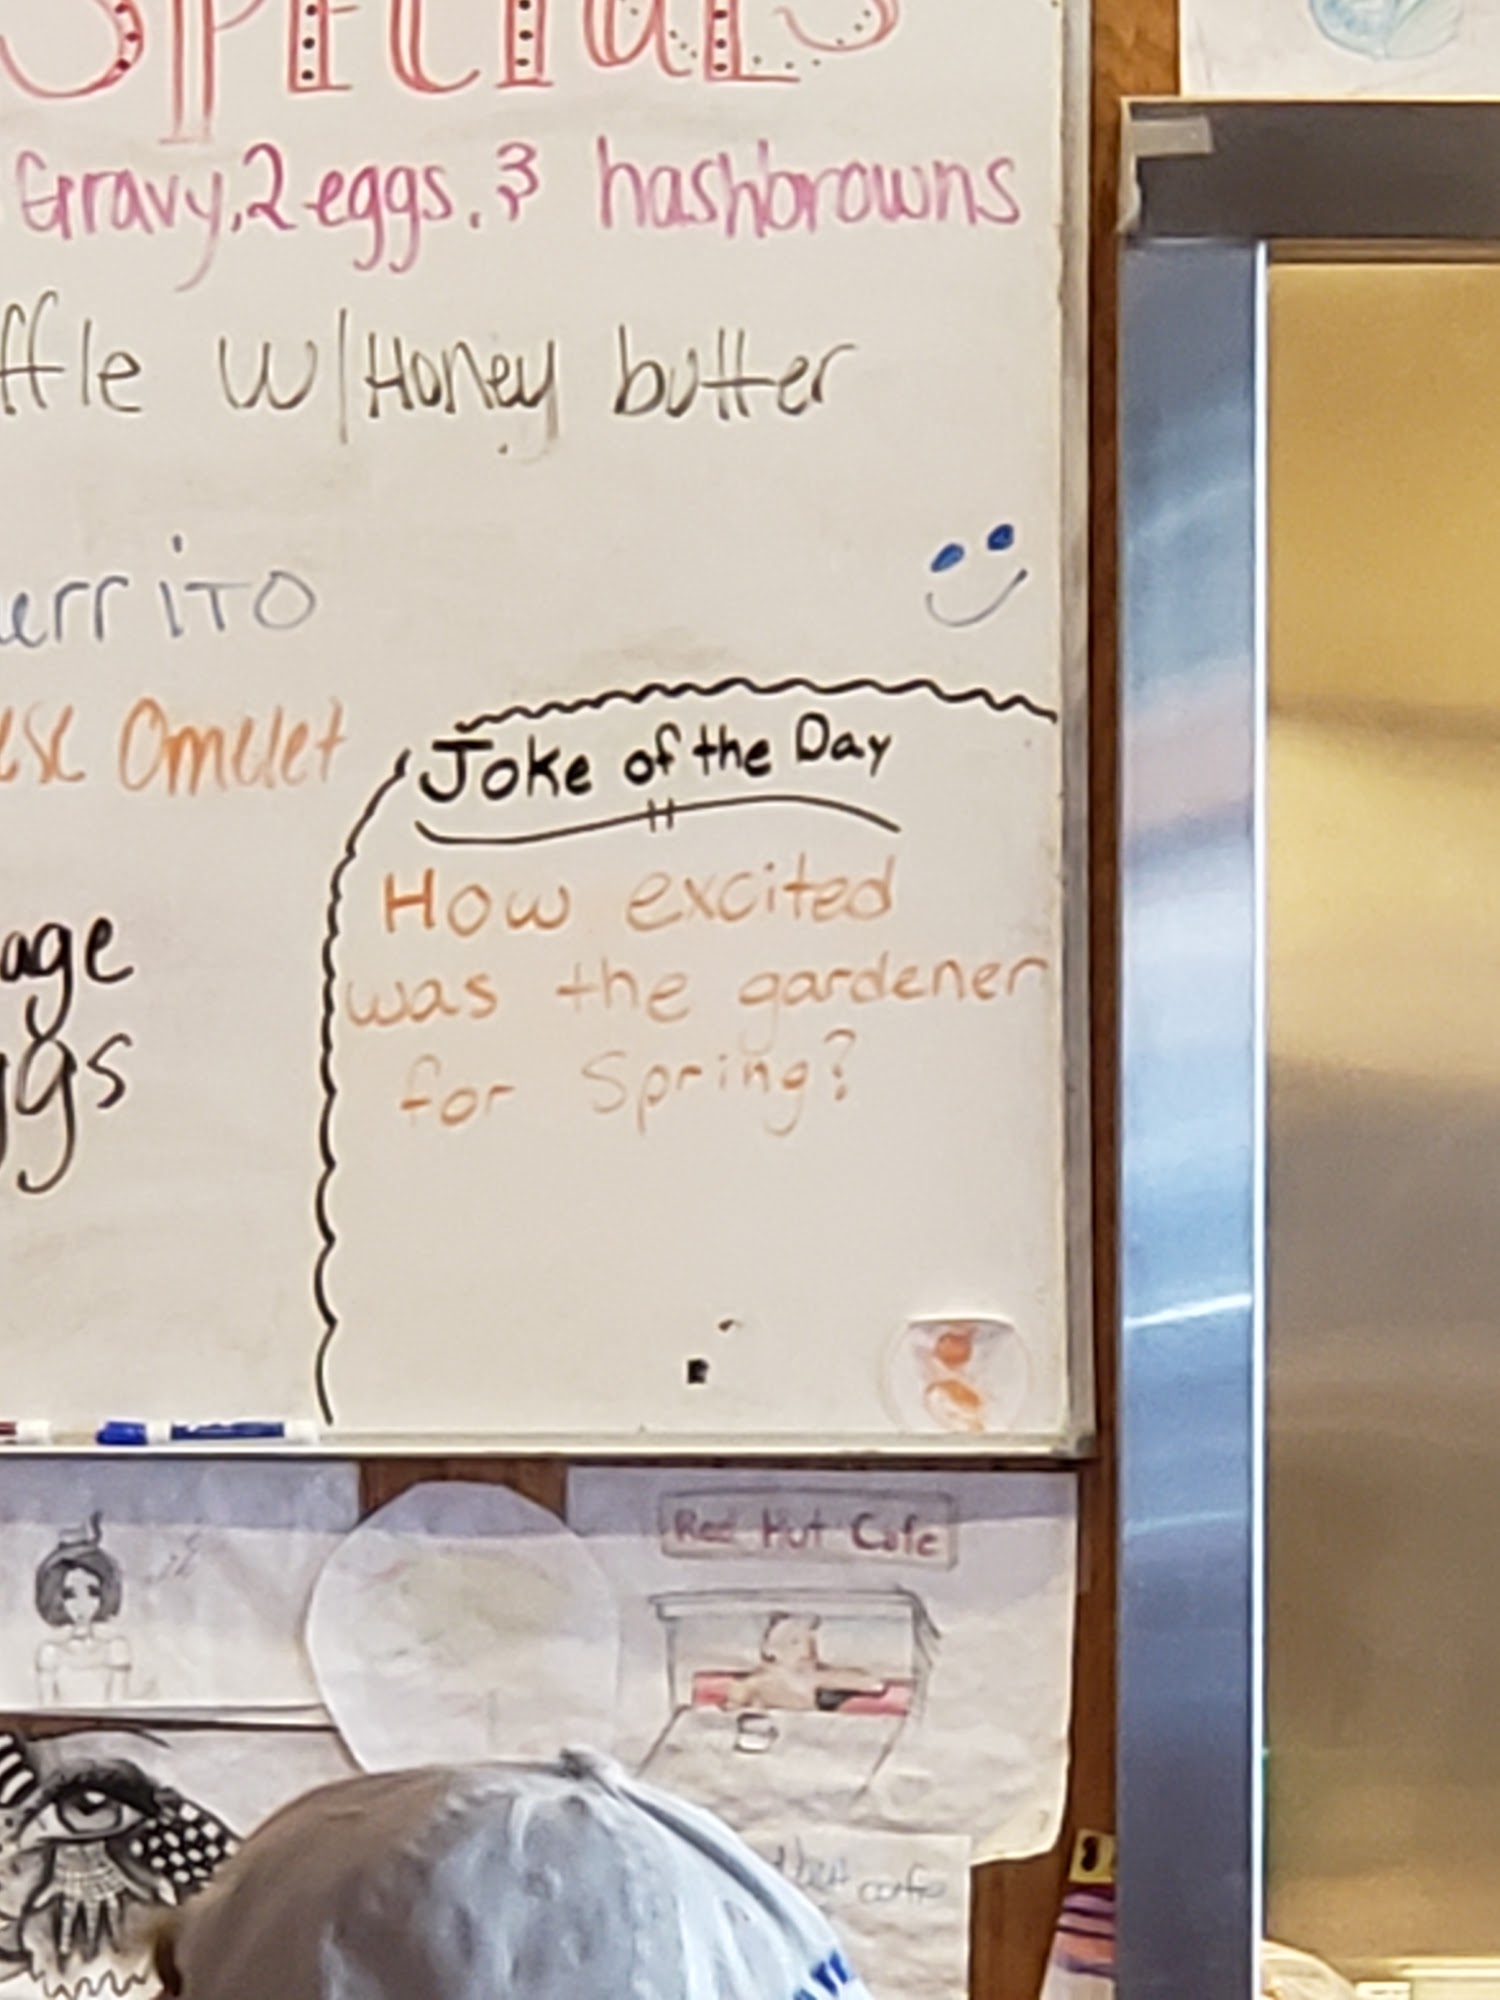 SPECIALS
Gravy, 2 eggs, & hashbrowns
ffle w/Honey butter
urrito
Omelet
Joke of the Day
How excited
was the gardener
for Spring?
age
ggs
Red Hut Cafe